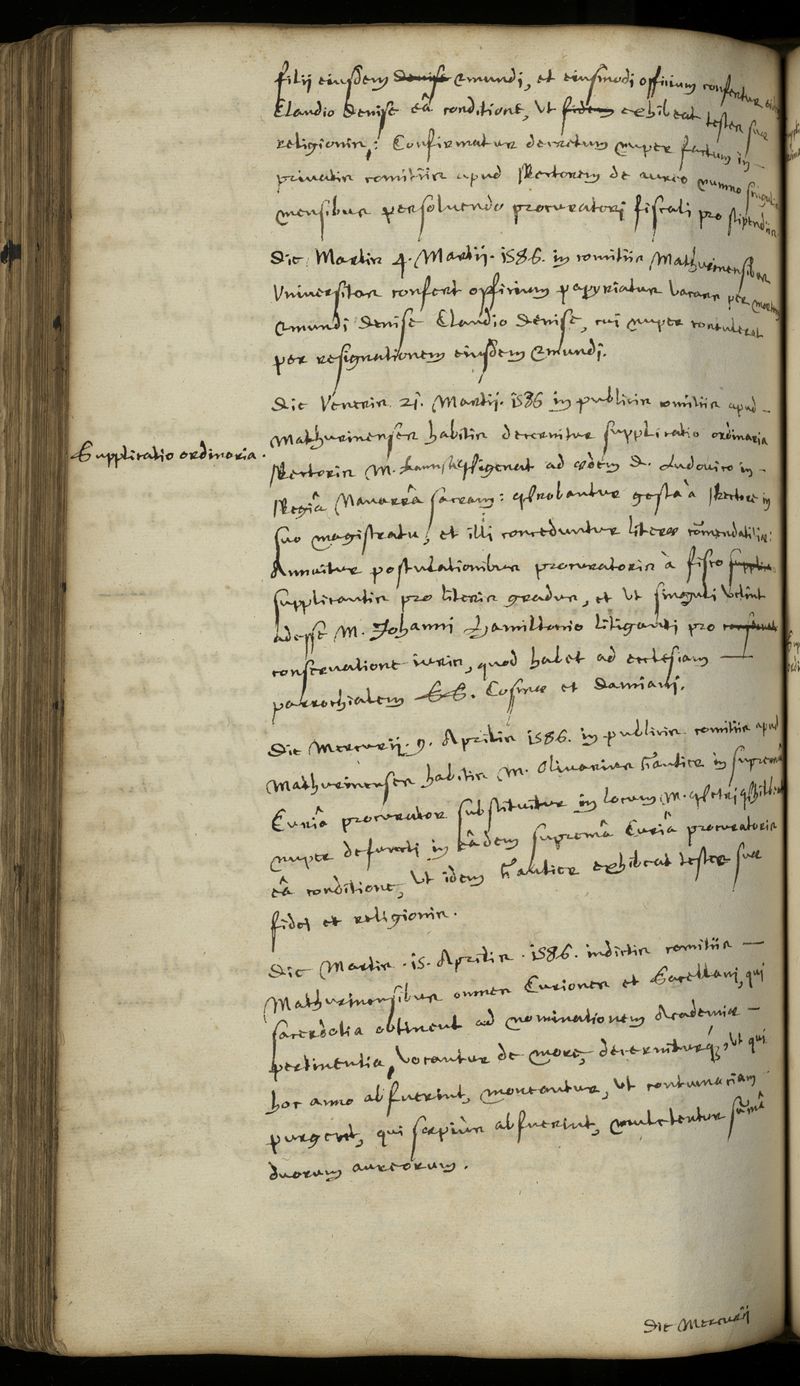 filij eiusdem Denise Emundi, et eiusmodi officium confertur
Claudio Denise eâ conditione, ut fidem exhibeat testes suæ
religionis: Confirmatur decretum nuper factum in
privatis comitiis apud Rectorem de aureo nummo singulis
mensibus persolvendo procuratori fiscali pro stipendio
Die Martis 4. Martij. 1586. in comitiis Mathurinensibus
Universitas confert officium papyriatus vacans per mortem
Emundi Denise Claudio Denise, cui nuper contulerat
per resignationem eiusdem Emundi.
Die Veneris 21. Martij. 1586 in publicis comitiis apud
Mathurinenses habitis decernitur supplicatio ordinaria
Supplicatio ordinaria.
Rectoris M. ad ædem D. Ludovico in
Regiâ Navarrâ sacram: probantur gesta à Rectore in
suo magistratu, et illi conceduntur literæ cõmendatitiæ:
Annuitur postulationibus procuratoris à fisco supplica
supplicantis pro literis gradus, et ut singuli velint
adesse M. Johanni Hamiltonio litiganti pro
conservatione iuris, quod habet ad ecclesiam
parrochialem SS. Cosmæ et Damiani.
Die Mercurij. 9. Aprilis 1586. in publicis comitiis apud
Mathurinenses habitis M. Olivarius Gautier in supremâ
Curiâ procurator substituitur in locum M. Petri
nuper defuncti in eâdem supremâ Curiâ procuratoris
eâ conditione, ut idem Gautier exhibeat testes suæ
fidei et religionis.
Die Martis .15. Aprilis .1586. indictis comitiis
Mathurinensibus omnes Curiones et Sacellani, qui
sacerdotia obtinent ad nominationem Academiæ
pertinentia, vocantur de more, decerniturq;, ut qui
hoc anno abfuerint, moneantur, ut contumaciam
purgent, qui sæpius abfuerint, mulctentur sũmâ
duorum aureorum.
Die Mercurij